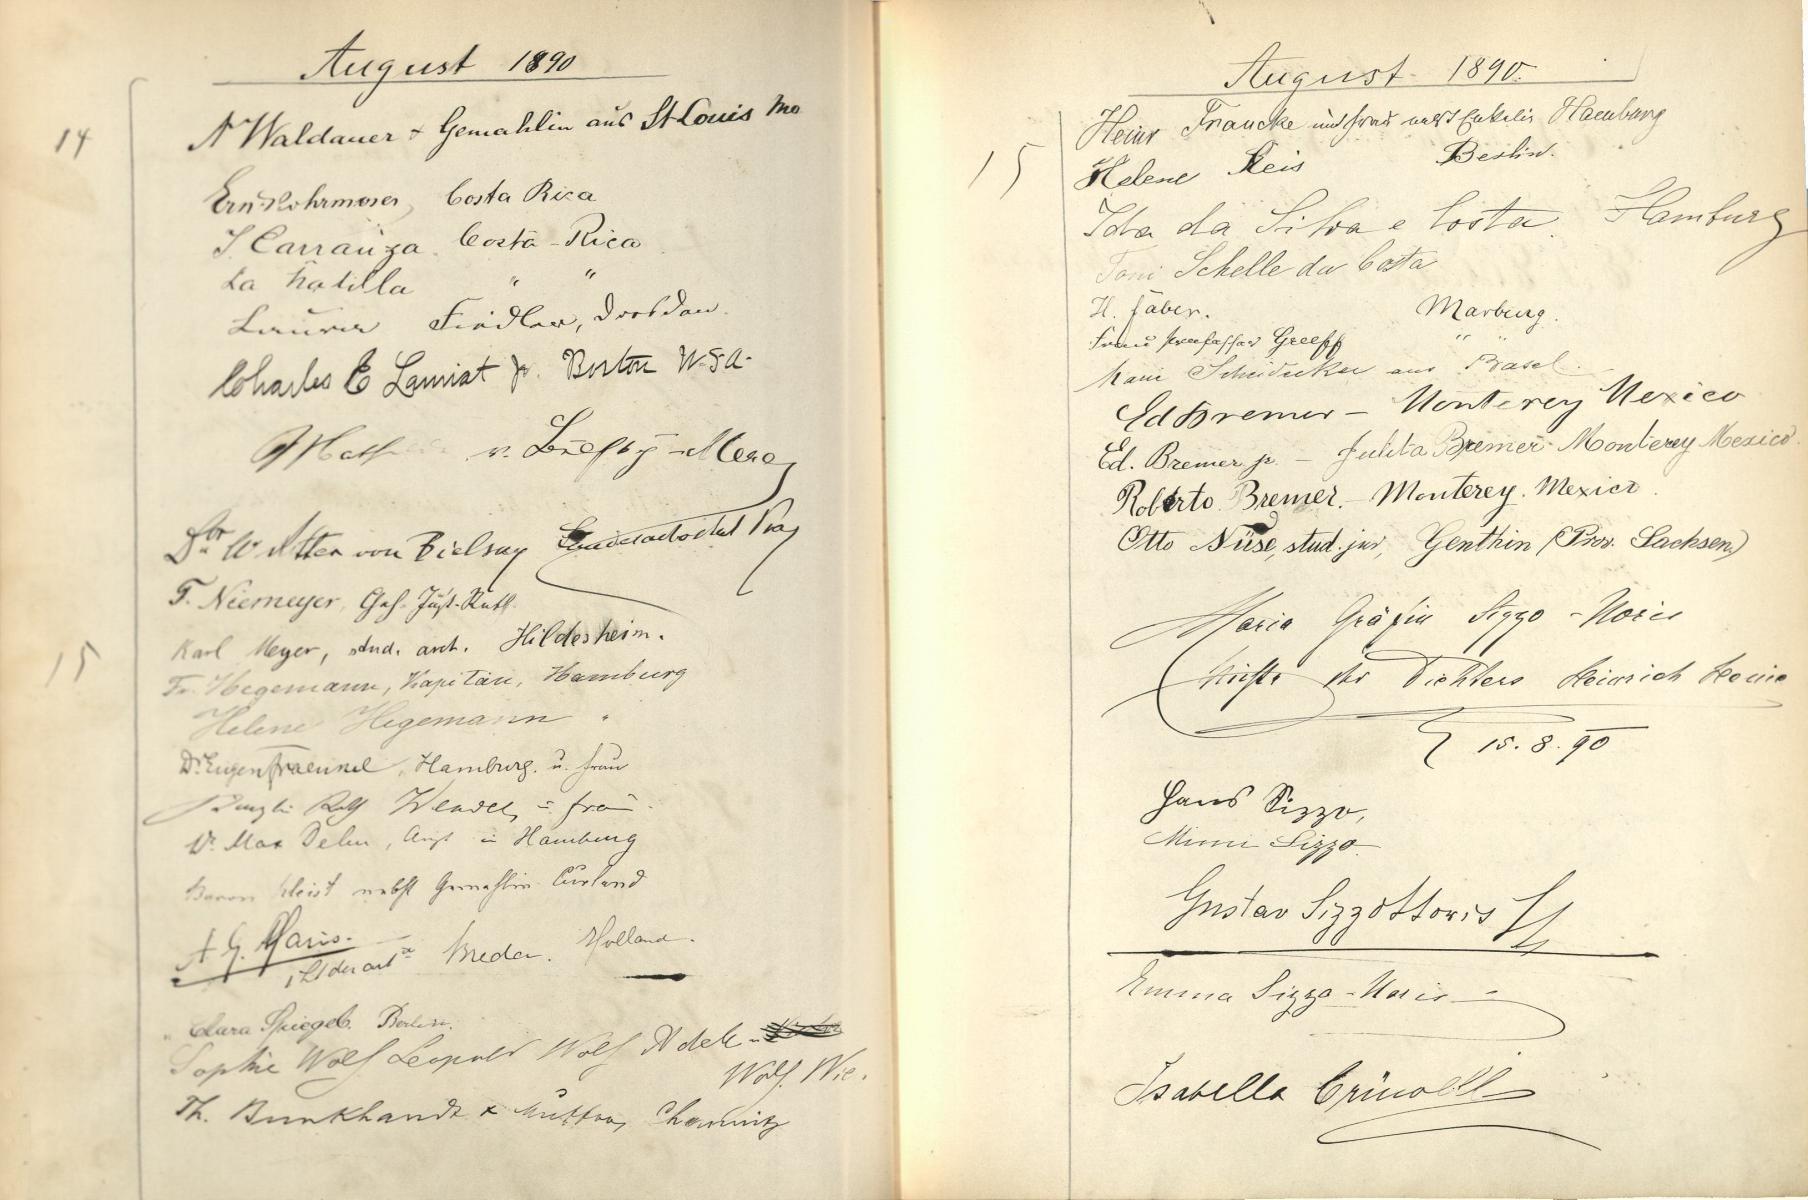 August 1890
14
A Waldauer & Gemahlin aus St Louis Mo
Ern. Rohrmoser, Costa Rica
J Carranza. Costa-Rica
La " "
Fiedler, Dresden.
Charles E Lauriat Jr. Boston U.S.A.
v.
Dr. W Ritter von
F. Niemeyer, Geh. Just. Rath.
15
Karl Meyer, stud. arch. Hildesheim.
Fr. Hegemann, Kapitän, Hamburg
Helene Hegemann "
Dr Eugen Fraenkel, Hamburg. u. Frau
Wendel u Frau.
Dr. Max Arzt in Hamburg
Baron Kleist nebst Gemahlin Curland
A G. Maris.
Breda. Holland.
Clara Spiegel. Berlin.
Sophie Wolf Leopold Wolf Adele
Wolf. Wie.
Th. Burkhardt & Mutter, Chemnitz
August 1890.
15
Heinr Francke und Frau nebst Enkelin Hamburg
Helene Reis Berlin.
Ida da Silva e Costa. Hamburg
Toni Schelle da Costa
H. Faber. Marburg.
Frau Professor Greeff " "
aus Basel.
Ed Bremer - Monterey Mexico
Ed. Bremer jr. - Julita Bremer Monterey Mexico.
Roberto Bremer. - Monterey. Mexico.
Otto Nüse, stud. jur, Genthin (Prov. Sachsen)
Maria Gräfin Sizzo-Noris
Nichte des Dichters Heinrich Heine
15.8.90
Hans Sizzo,
Mimi Sizzo
Gustav Sizzo Noris
Emma Sizzo-Noris
Isabella